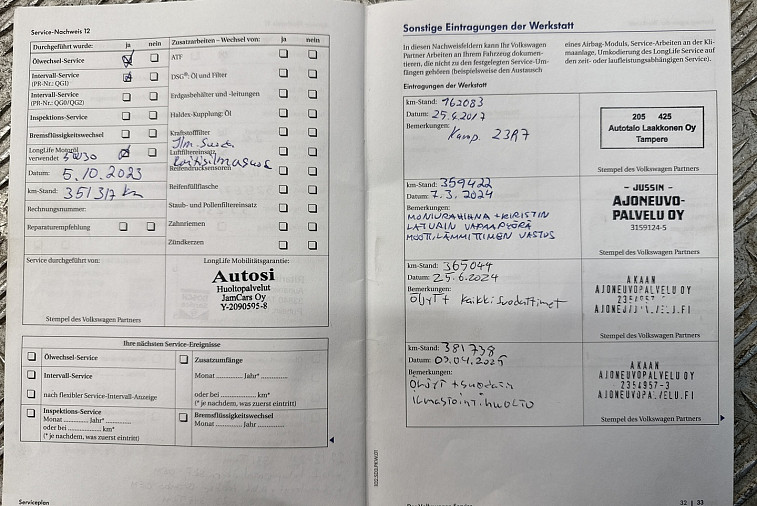 Service-Nachweis 12
Durchgeführt wurde: ja nein
Ölwechsel-Service
Intervall-Service
(PR-Nr.: QG1)
Intervall-Service
(PR-Nr.: QG0/QG2)
Inspektions-Service
Bremsflüssigkeitswechsel
LongLife Motoröl
verwendet 5W30
Datum: 5.10.2023
km-Stand: 351317 km
Rechnungsnummer:
Reparaturempfehlung
Zusatzarbeiten – Wechsel von: ja nein
ATF
DSG®: Öl und Filter
Erdgasbehälter und -leitungen
Haldex-Kupplung: Öl
Kraftstofffilter
Ilm. Suodin
Luftfiltereinsatz
Reifendrucksensoren
Reifenfüllflasche
Staub- und Pollenfiltereinsatz
Zahnriemen
Zündkerzen
Service durchgeführt von:
Stempel des Volkswagen Partners
LongLife Mobilitätsgarantie:
Autosi
Huoltopalvelut
JamCars Oy
Y-2090595-8
Ihre nächsten Service-Ereignisse
Ölwechsel-Service
Intervall-Service
nach flexibler Service-Intervall-Anzeige
Inspektions-Service
Monat ........... Jahr* ...........
oder bei ........... km*
(* je nachdem, was zuerst eintritt)
Zusatzumfänge
Monat ........... Jahr* ...........
oder bei ........... km*
(* je nachdem, was zuerst eintritt)
Bremsflüssigkeitswechsel
Monat ........... Jahr ...........
Serviceplan
Sonstige Eintragungen der Werkstatt
In diesen Nachweisfeldern kann Ihr Volkswagen
Partner Arbeiten an Ihrem Fahrzeug dokumen-
tieren, die nicht zu den festgelegten Service-Um-
fängen gehören (beispielsweise den Austausch
eines Airbag-Moduls, Service-Arbeiten an der Kli-
maanlage, Umkodierung des LongLife Service auf
den zeit- oder laufleistungsabhängigen Service).
Eintragungen der Werkstatt
km-Stand: 162083
Datum: 25.4.2017
Bemerkungen:
Kamp. 23A7
205 425
Autotalo Laakkonen Oy
Tampere
Stempel des Volkswagen Partners
km-Stand: 359422
Datum: 7.3.2024
Bemerkungen:
MONIURAHIHNA + KIRISTIN
LATURIN VAPAAPYÖRÄ
MOOTT.LÄMMITTIMEN VASTUS
– JUSSIN –
AJONEUVO-
PALVELU OY
3159124-5
Stempel des Volkswagen Partners
km-Stand: 365044
Datum: 25.6.2024
Bemerkungen:
Öljyt + Kaikki Suodattimet
AKAAN
AJONEUVOPALVELU OY
Stempel des Volkswagen Partners
km-Stand: 381738
Datum: 09.04.2025
Bemerkungen:
Öljyt + suodatin
ilmastointihuolto
AKAAN
AJONEUVOPALVELU OY
2354957-3
Stempel des Volkswagen Partners
32 | 33